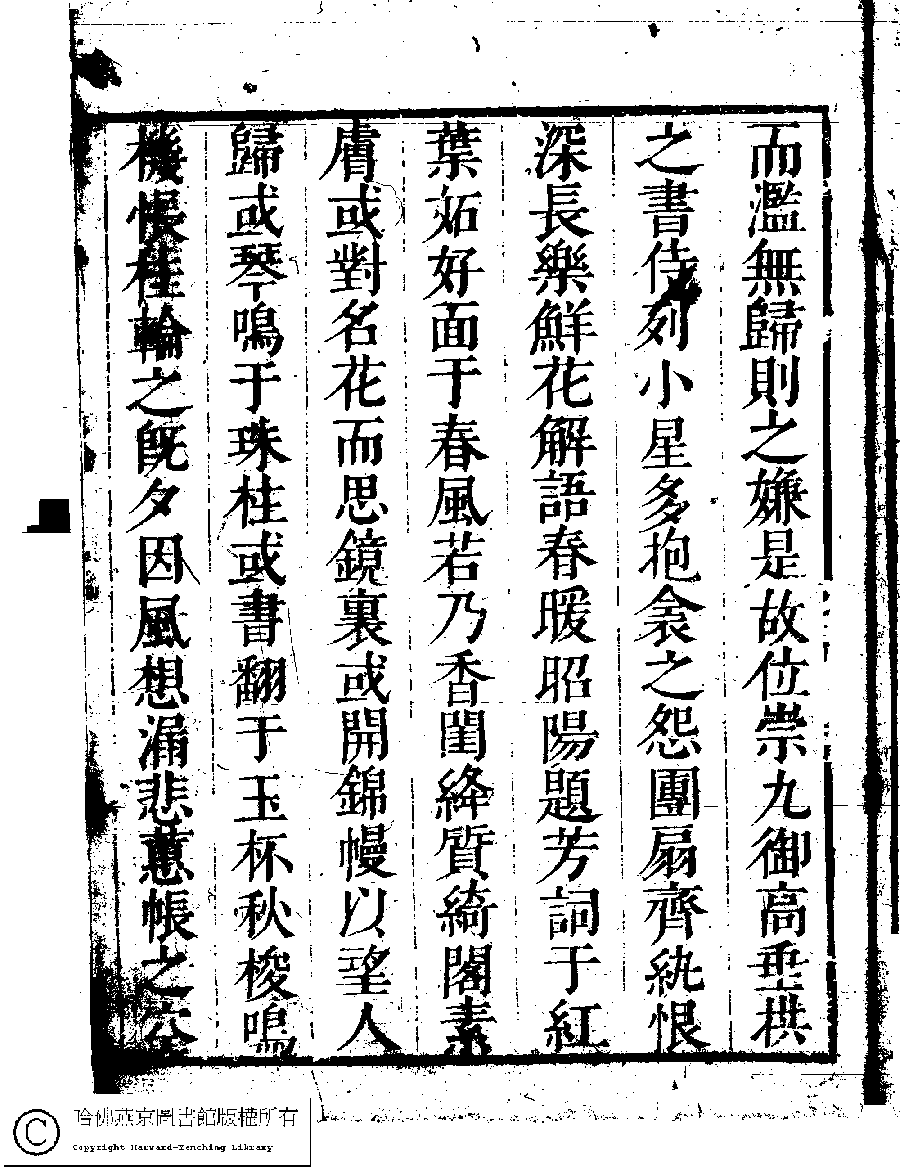 而濫無歸則之嫌是故位崇九御高垂拱
之書侍列小星多抱衾之怨團扇齊紈恨
深長樂鮮花解語春暖昭陽題芳詞于紅
葉妬好面于春風若乃香閨絳質綺閣素
膚或對名花而思鏡裏或開錦幔以望人
歸或琴鳴于珠柱或書翻于玉杯秋梭鳴
機悵桂輪之旣夕因風想漏悲蕙帳之空
哈佛燕京圖書館版權所有
Copyright Harvard-Yenching Library